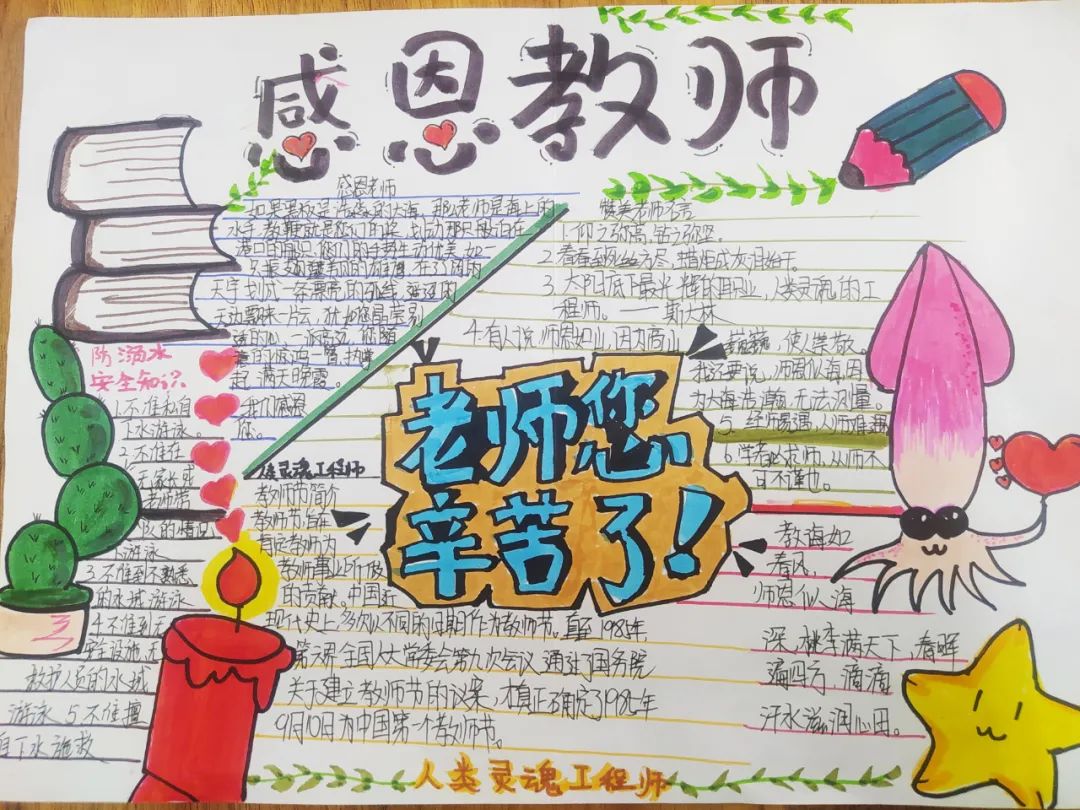 感恩教师
感恩老师
如果黑板是浩淼的大海,那么老师是海上的
水手。教鞭就是您们的桨,划动那只船泊在
港口的船只。您们的手势生动优美,如一
天宇划
满天晚霞。
我们感恩
您。
赞美老师名言
1.仰之弥高,钻之弥坚。
2.春蚕到死丝方尽,蜡炬成灰泪始干。
3.太阳底下最光辉的职业,人类灵魂的工
程师。——斯大林
4.有人说,师恩如山,因为高山
巍巍,使人崇敬。
我还要说,师恩似海,因
为大海浩瀚,无法测量。
5.经师易遇,人师难遇
6.学者必求师,从师不
可不谨也。
防溺水
安全知识
1.不准私自
下水游泳。
2.不准在
无家长或
老师带
队的情况
下游泳
3.不准到不熟悉
的水域游泳
4.不准到无
安全设施、无
救护人员的水域
游泳 5.不准擅
自下水施救
灵魂工程师
教师节简介
教师节旨在
肯定教师为
教师事业所做
的贡献。中国近
现代史上,多次以不同的日期作为教师节。直至1985年
第六届全国人大常委会第九次会议通过了国务院
关于建立教师节的议案,才真正确定了1985年
9月10日为中国第一个教师节。
老师您
辛苦了!
教诲如
春风,
师恩似海
深,桃李满天下,春晖
遍四方 滴滴
汗水滋润心田。
人类灵魂工程师